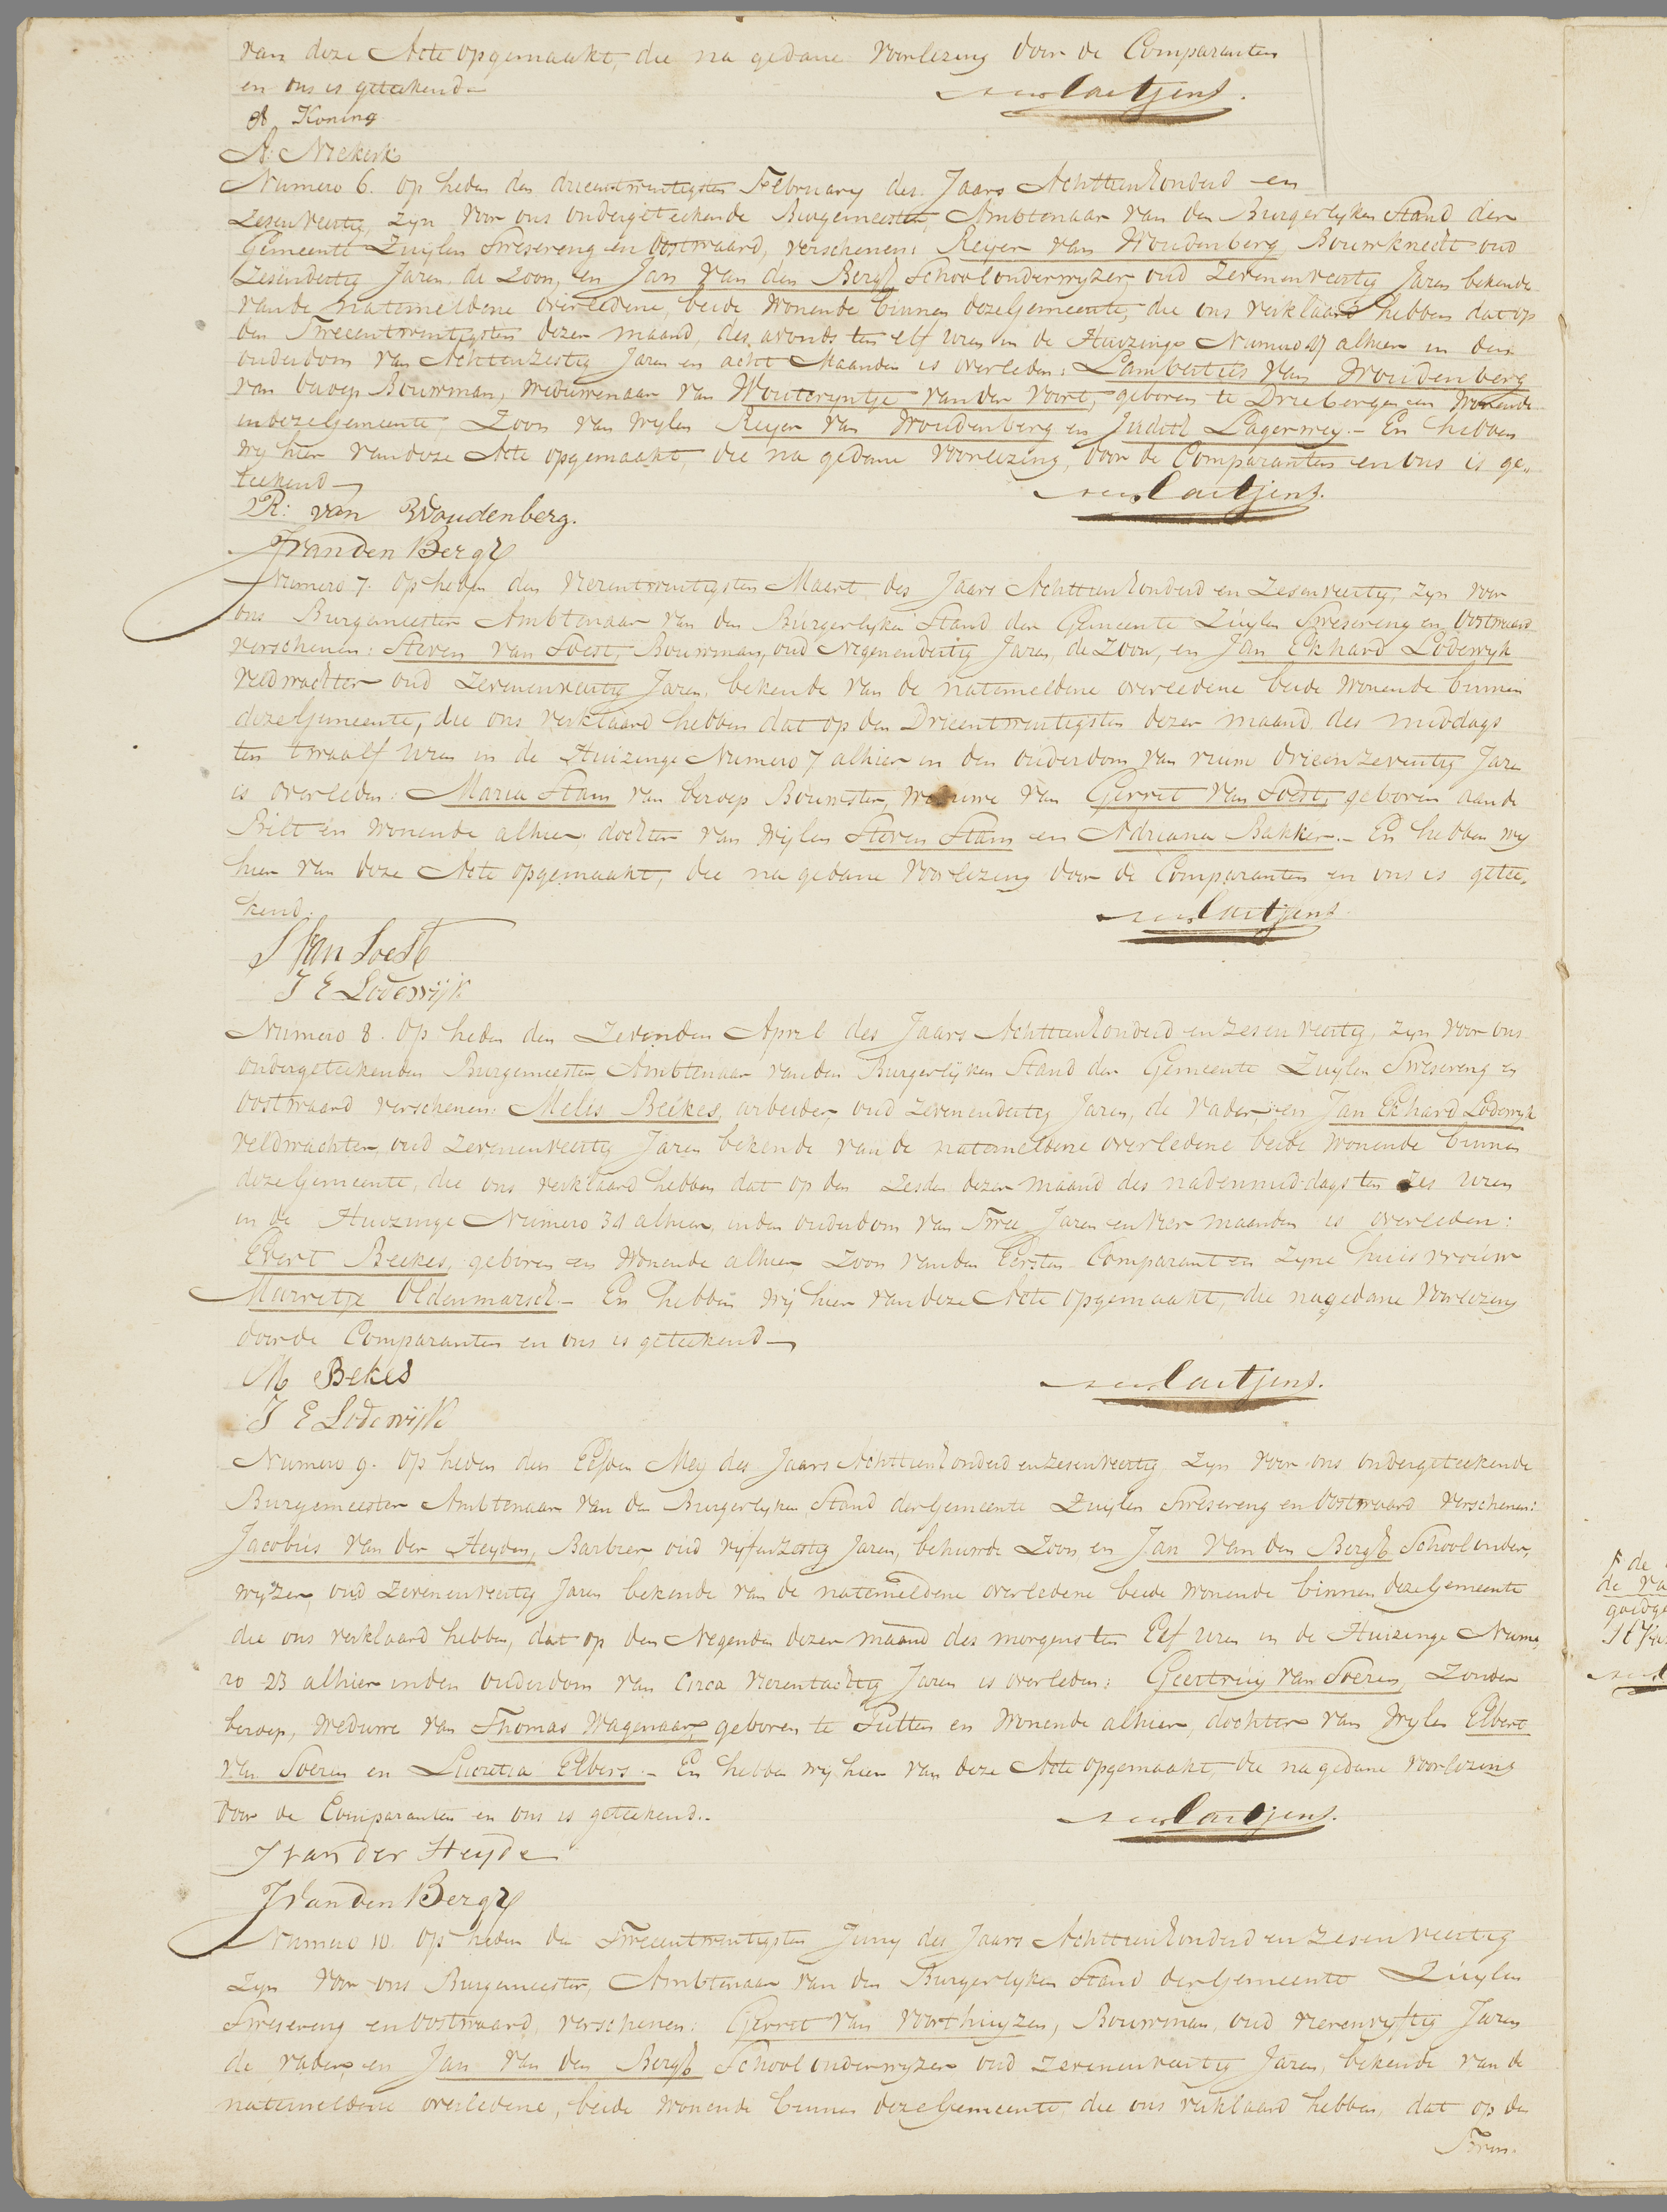 van deze Acte opgemaakt, die na gedane voorlezing door de Comparanten
en ons is geteekend
A Koning
A: Niekerk
Numero 6. Op heden den drieentwintigsten February des Jaars Achttienhonderd en
Zesenveertig, zijn voor ons ondergeteekende Burgemeester, Ambtenaar van den Burgerlyken Stand der
Gemeente Zuylen Swesereng en Oostwaard, verschenen: Reijer van Woudenberg, Bouwknecht oud
Zesendertig Jaren, de Zoon, en Jan van den Bergh Schoolonderwyzer oud Zevenenveertig Jaren bekende
van de natemeldene overledene, beide wonende binnen deze Gemeente, die ons verklaard hebben dat op
den Tweeentwintigsten dezer maand, des avonds ten elf uren in de Huizinge Numero alhier in den
ouderdom van Achtenzestig Jaren en acht Maanden is overleden: Lambertus van Woudenberg
van beroep Bouwman, weduwenaar van Wouteryntje van der Voort, geboren te Driebergen en wonende
in deze Gemeente Zoon van wylen Reyer van Woudenberg en Judith Lagerwey.- En hebben
wy hier van deze Acte opgemaakt, die na gedane voorlezing, door de Comparanten en ons is ge„
teekend
R: van Woudenberg.
J van den Bergh
Numero 7. Op heden den vierentwintigsten Maart des Jaars Achttienhonderd en Zesenveertig, zyn voor
ons Burgemeester Ambtenaar van den Burgerlyken Stand der Gemeente Zuylen Swesereng en Oostwaard
verschenen: Steven van Soest, Bouwman, oud Negenendertig Jaren, de Zoon, en Jan Ekhard Lodewyk
veldwachter oud zevenenveertig Jaren, bekende van de natemeldene overledene beide wonende binnen
deze Gemeente, die ons verklaard hebben dat op den Drieentwintigsten dezer maand des middags
ten twaalf uren in de Huizinge Numero 7 alhier in den ouderdom van ruim drieenzeventig Jaren
is overleden: Maria Stam van beroep Bouwster, weduwe van Gerrit van Soest, geboren aan de
Bilt en wonende alhier, dochter van Wylen Steven Stam en Adriana Bakker.- En hebben wy
hier van deze Acte opgemaakt, die na gedane voorlezing door de Comparanten en ons is getee„
kend.
S van Soest
J E Lodewijk
Numero 8. Op heden den Zevenden April des Jaars Achttienhonderd en zesenveertig, zyn voor ons
ondergeteekenden Burgemeester Ambtenaar van den Burgerlyken Stand der Gemeente Zuylen Swesereng en
Oostwaard verschenen: Melis Beekes, arbeider, oud zevenendertig Jaren, de vader, en Jan Ekhard Lodewyk
veldwachter, oud zevenenveertig Jaren bekende van de natemeldene overledene beide wonende binnen
deze Gemeente, die ons verklaard hebben dat op den zesden dezer maand des nademiddags ten zes uren
in de Huizinge Numero 34 alhier, in den ouderdom van Twee Jaren en vier maanden is overleden:
Evert Beekes, geboren en wonende alhier Zoon van den Eersten Comparant en zyne huisvrouw
Marretje Oldenmarsch.- En hebben wij hier van deze Acte opgemaakt, die na gedane voorlezing
door de Comparanten en ons is geteekend
M Bekes
J E Lodewijk
Numero 9. Op heden den Elfden Mey des Jaars Achttienhonderd en zesenveertig Zyn voor ons ondergeteekende
Burgemeester Ambtenaar van den Burgerlyken Stand der Gemeente Zuylen Swesereng en Oostwaard verschenen:
Jacobus van der Heyden, Barbier, oud vyfenzestig Jaren, behuwde Zoon, en Jan van den Bergh Schoolonder„
wyzer, oud Zevenenveertig Jaren bekende van de natemeldene overledene beide wonende binnen deze Gemeente
die ons verklaard hebben, dat op den Negenden dezer maand des morgens ten Elf uren in de Huizinge Nume„
ro 23 alhier in den ouderdom van circa vierentachtig Jaren is overleden: Geertruy van Soeren, Zonder
beroep, Weduwe van Thomas Wagenaar, geboren te Putten en wonende alhier, dochter van Wylen Elbert
van Soeren en Lucretia Elbers.- En hebben wy hier van deze Acte opgemaakt, die na gedane voorlezing
door de Comparanten en ons is geteekend.-
J van der Heyde
J van den Bergh
Numero 10. Op heden den Tweeentwintigsten Juny des Jaars Achttienhonderd en zesenveertig
zyn voor ons Burgemeester, Ambtenaar van den Burgerlyken Stand der Gemeente Zuylen
Swesereng en Oostwaard, verschenen: Gerrit van Voorthuyzen, Bouwman, oud vierenvyftig Jaren
de vader, en Jan van den Bergh Schoolonderwyzer oud zevenenveertig Jaren, bekende van de
natemeldene overledene, beide wonende binnen deze Gemeente, die ons verklaard hebben, dat op den